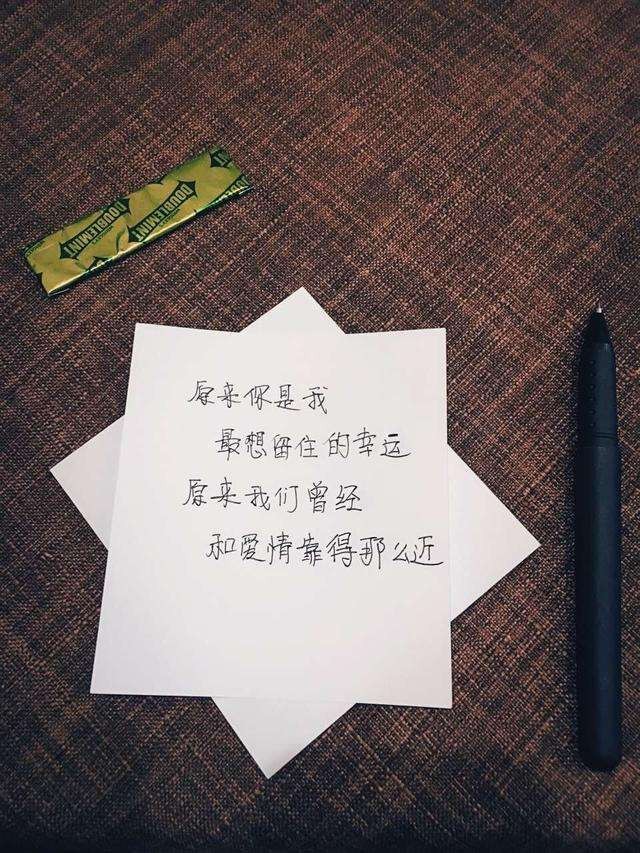 DOUBLEMINT DOUBLEMINT
原来你是我
最想留住的幸运
原来我们曾经
和爱情靠得那么近